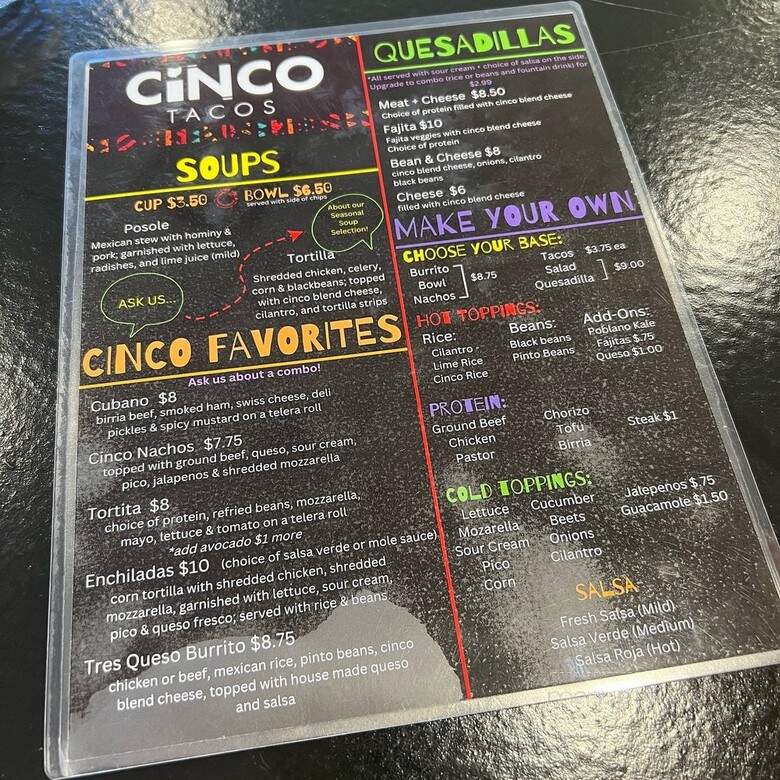 CiNCO
TACOS
SOUPS
CUP $3.50 BOWL $6.50
served with side of chips
Posole
Mexican stew with hominy &
pork; garnished with lettuce,
radishes, and lime juice (mild)
About our
Seasonal
Soup
Selection!
ASK US...
Tortilla
Shredded chicken, celery,
corn & blackbeans; topped
with cinco blend cheese,
cilantro, and tortilla strips
CINCO FAVORITES
Ask us about a combo!
Cubano $8
birria beef, smoked ham, swiss cheese, deli
pickles & spicy mustard on a telera roll
Cinco Nachos $7.75
topped with ground beef, queso, sour cream,
pico, jalapenos & shredded mozzarella
Tortita $8
choice of protein, refried beans, mozzarella,
mayo, lettuce & tomato on a telera roll
*add avocado $1 more
Enchiladas $10 (choice of salsa verde or mole sauce)
corn tortilla with shredded chicken, shredded
mozzarella, garnished with lettuce, sour cream,
pico & queso fresco; served with rice & beans.
Tres Queso Burrito $8.75
chicken or beef, mexican rice, pinto beans, cinco
blend cheese, topped with house made queso
and salsa
QUESADILLAS
*All served with sour cream + choice of salsa on the side.
Upgrade to combo (rice or beans and fountain drink) for
$2.99
Meat + Cheese $8.50
Choice of protein filled with cinco blend cheese
Fajita $10
Fajita veggies with cinco blend cheese
Choice of protein
Bean & Cheese $8
cinco blend cheese, onions, cilantro
black beans
Cheese $6
filled with cinco blend cheese
MAKE YOUR OWN
CHOOSE YOUR BASE:
Burrito
Bowl
Nachos
$8.75
Tacos $3.75 ea
Salad
Quesadilla
$9.00
HOT TOPPINGS:
Rice:
Cilantro
Lime Rice
Cinco Rice
Beans:
Black beans
Pinto Beans
Add-Ons:
Poblano Kale
Fajitas $.75
Queso $1.00
PROTEIN:
Ground Beef
Chicken
Pastor
Chorizo
Tofu
Birria
Steak $1
COLD TOPPINGS:
Lettuce
Mozarella
Sour Cream
Pico
Corn
Cucumber
Beets
Onions
Cilantro
Jalepenos $.75
Guacamole $1.50
SALSA
Fresh Salsa (Mild)
Salsa Verde (Medium)
Salsa Roja (Hot)